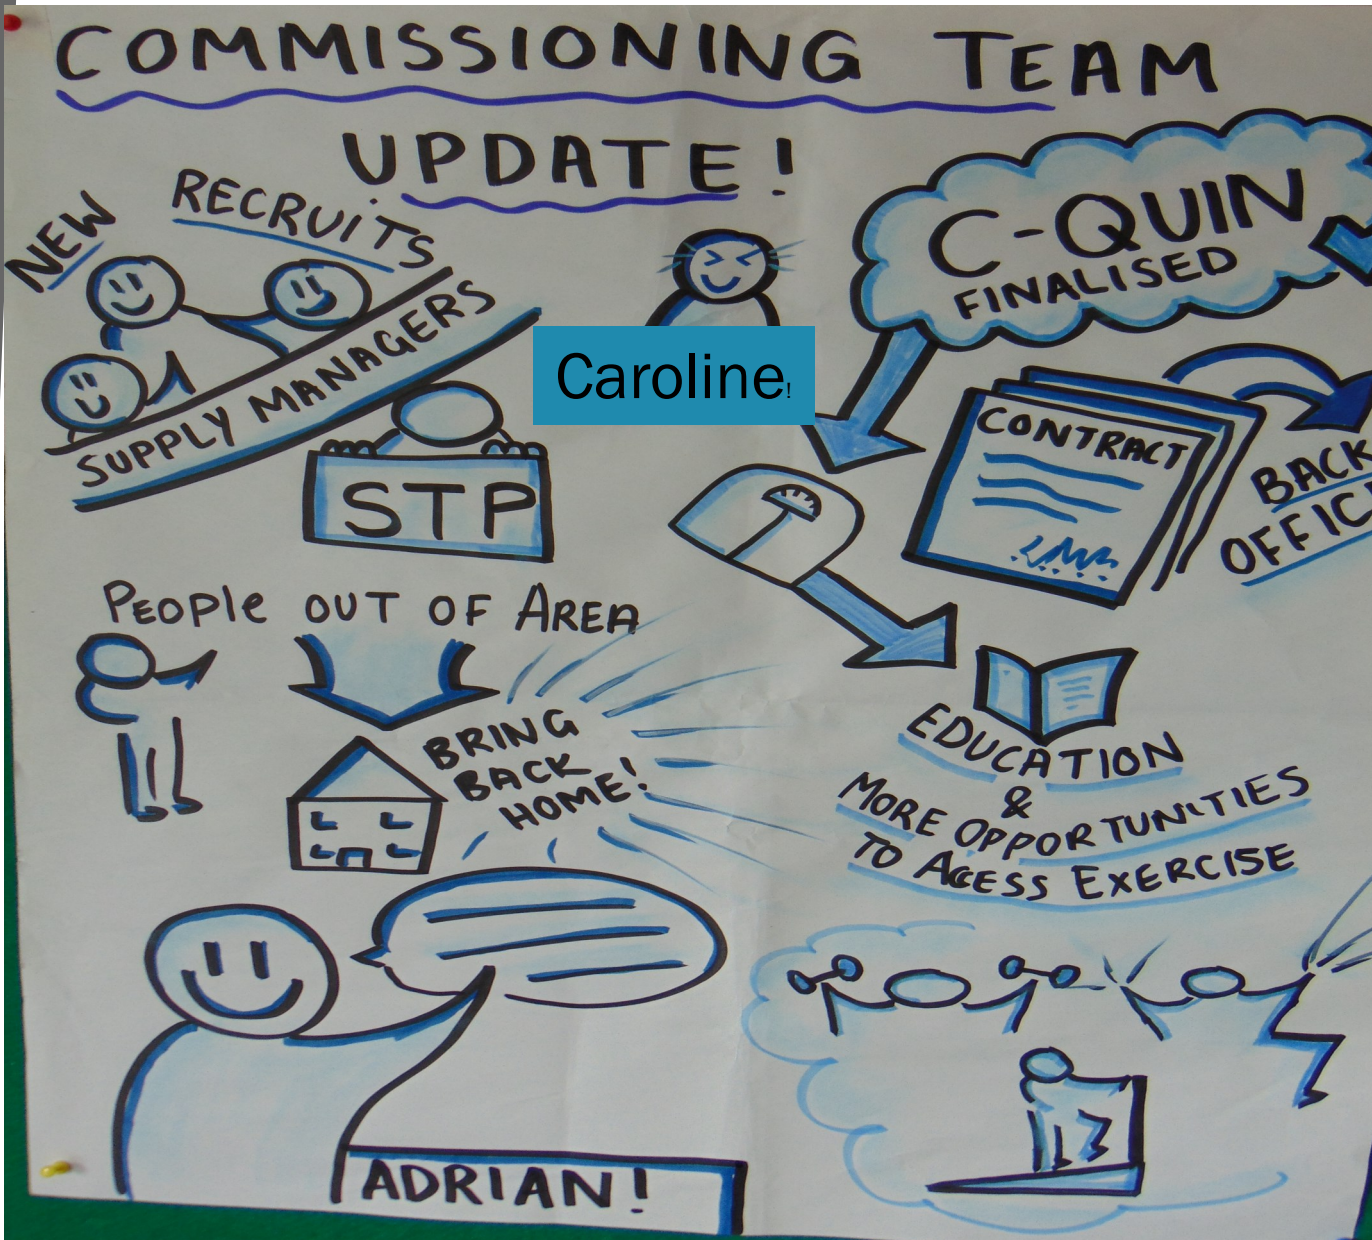 COMMISSIONING TEAM
UPDATE!
NEW RECRUiTS
SUPPLY MANAGERS
STP
Caroline!
C-QUIN
FINALISED
CONTRACT
BACK
OFFIC
PEOPle OUT OF AREA
BRING
BACK
HOME!
EDUCATION
&
MORE OPPORTUNITIES
TO ACCESS EXERCISE
ADRIAN!